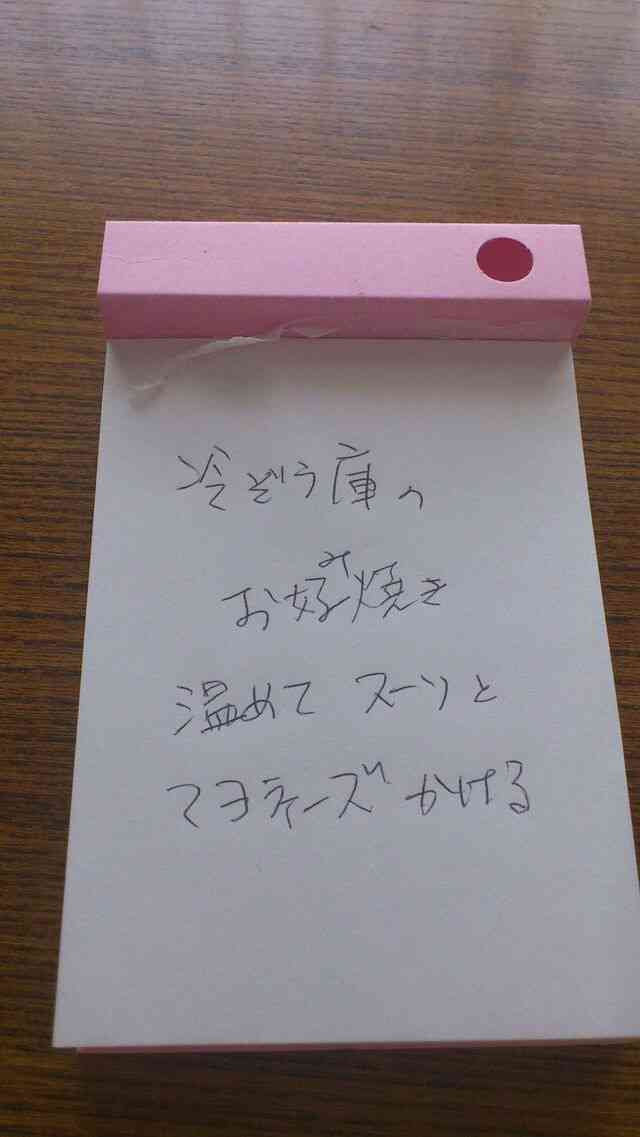 冷ぞう庫の
お好み焼き
温めて スーソと
マヨネーズかける